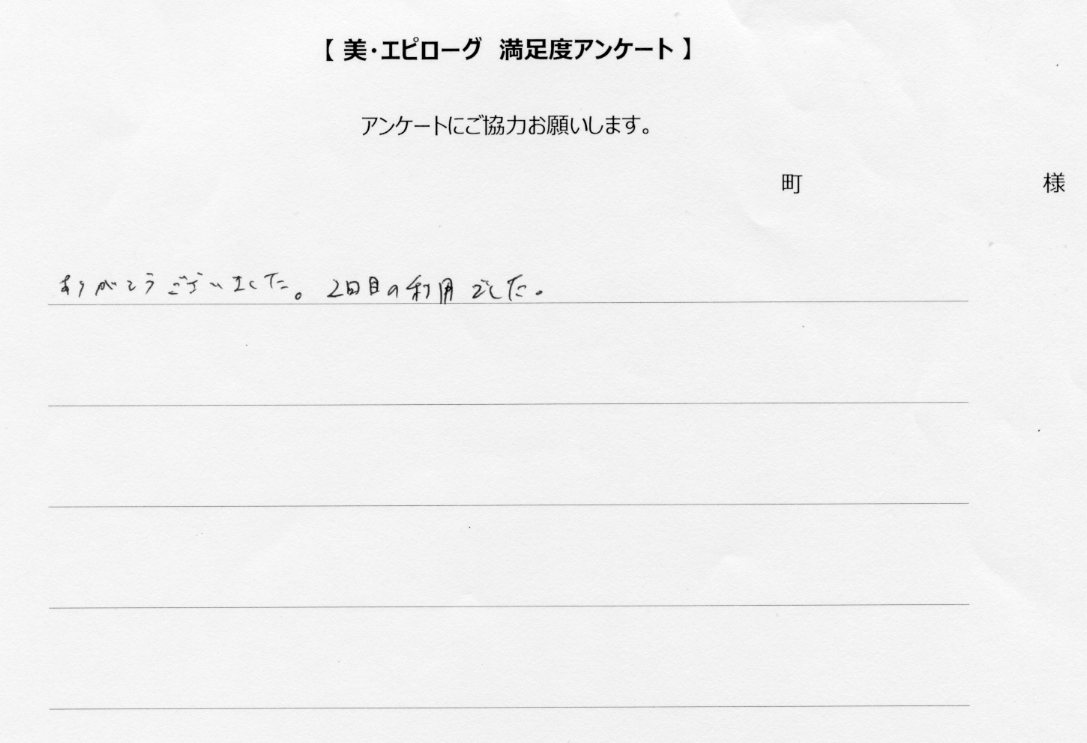 【 美・エピローグ 満足度アンケート 】
アンケートにご協力お願いします。
町 様
ありがとうございました。2回目の利用でした。